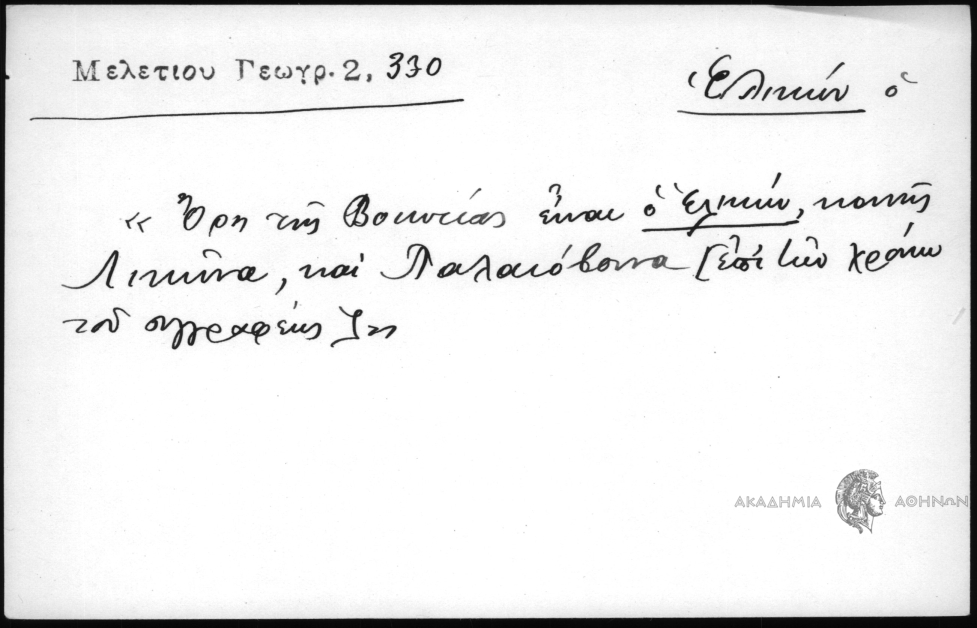 Μελετίου Γεωγρ. 2, 330
Ἑλικών ὁ
« Ὄρη τῆς Βοιωτίας εἶναι ὁ Ἑλικών, κοινῶς
Λικῶνα, καὶ Παλαιόβουνα [ἐπὶ τῶν χρόνων
τοῦ συγγραφέως]»
ΑΚΑΔΗΜΙΑ ΑΘΗΝΩΝ